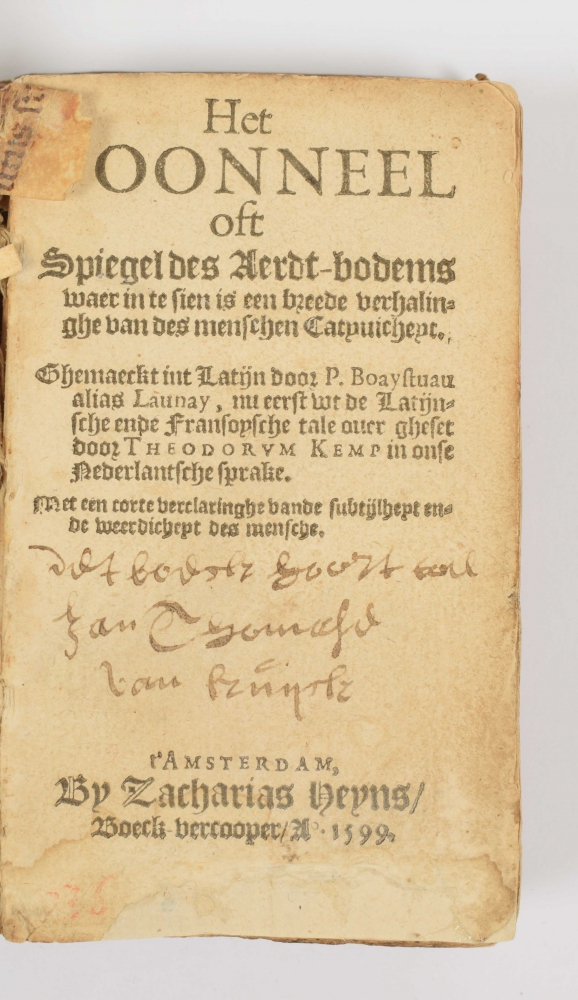 Het
OONNEEL
oft
Spiegel des Aerdt-bodems
waer in te sien is een breede verhalin=
ghe van des menschen Catyuicheyt.
Ghemaeckt int Latijn door P. Boaystuau
alias Launay, nu eerst wt de Latijn=
sche ende Fransoysche tale ouer gheset
door THEODORVM KEMP in onse
Nederlantsche sprake.
Met een corte verclaringhe vande subtijlheyt en=
de weerdicheyt des mensche.
dit boeck hoort
Jan
van
t'AMSTERDAM,
By Zacharias Heyns/
Boeck-vercooper/A°. 1599.